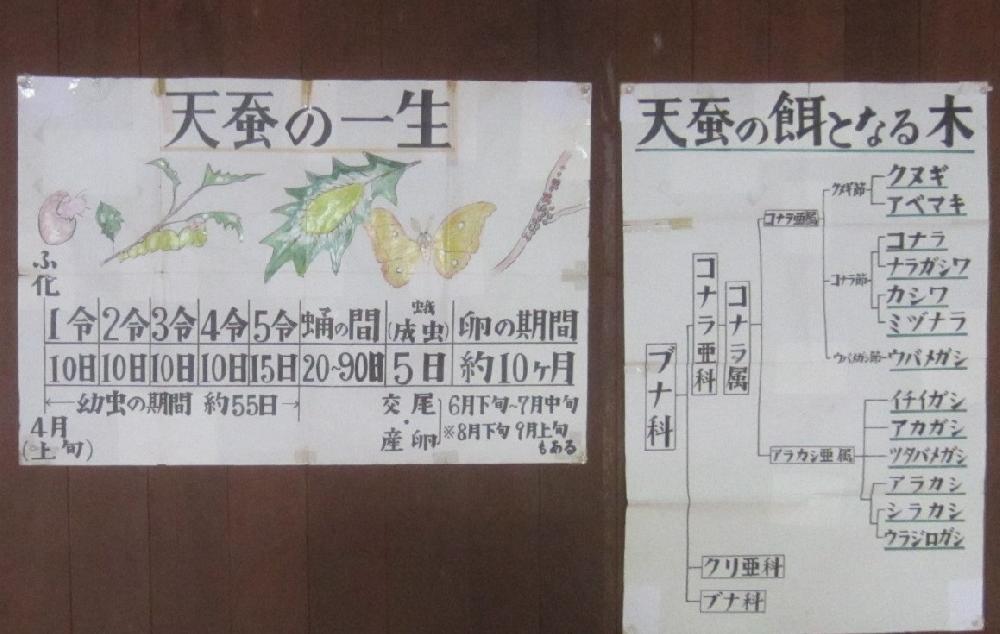 天蚕の一生
ふ化
1令 2令 3令 4令 5令 蛹の間 蛾(成虫) 卵の期間
10日 10日 10日 10日 15日 20~90日 5日 約10ヶ月
幼虫の期間 約55日
4月(上旬)
交尾・産卵
6月下旬~7月中旬
※8月下旬 9月上旬もある
天蚕の餌となる木
ブナ科
コナラ亜科
コナラ属
コナラ亜属
クヌギ節
クヌギ
アベマキ
コナラ節
コナラ
ナラガシワ
カシワ
ミヅナラ
ウバメガシ節
ウバメガシ
アラカシ亜属
イチイガシ
アカガシ
ツクバメガシ
アラカシ
シラカシ
ウラジロガシ
クリ亜科
ブナ科